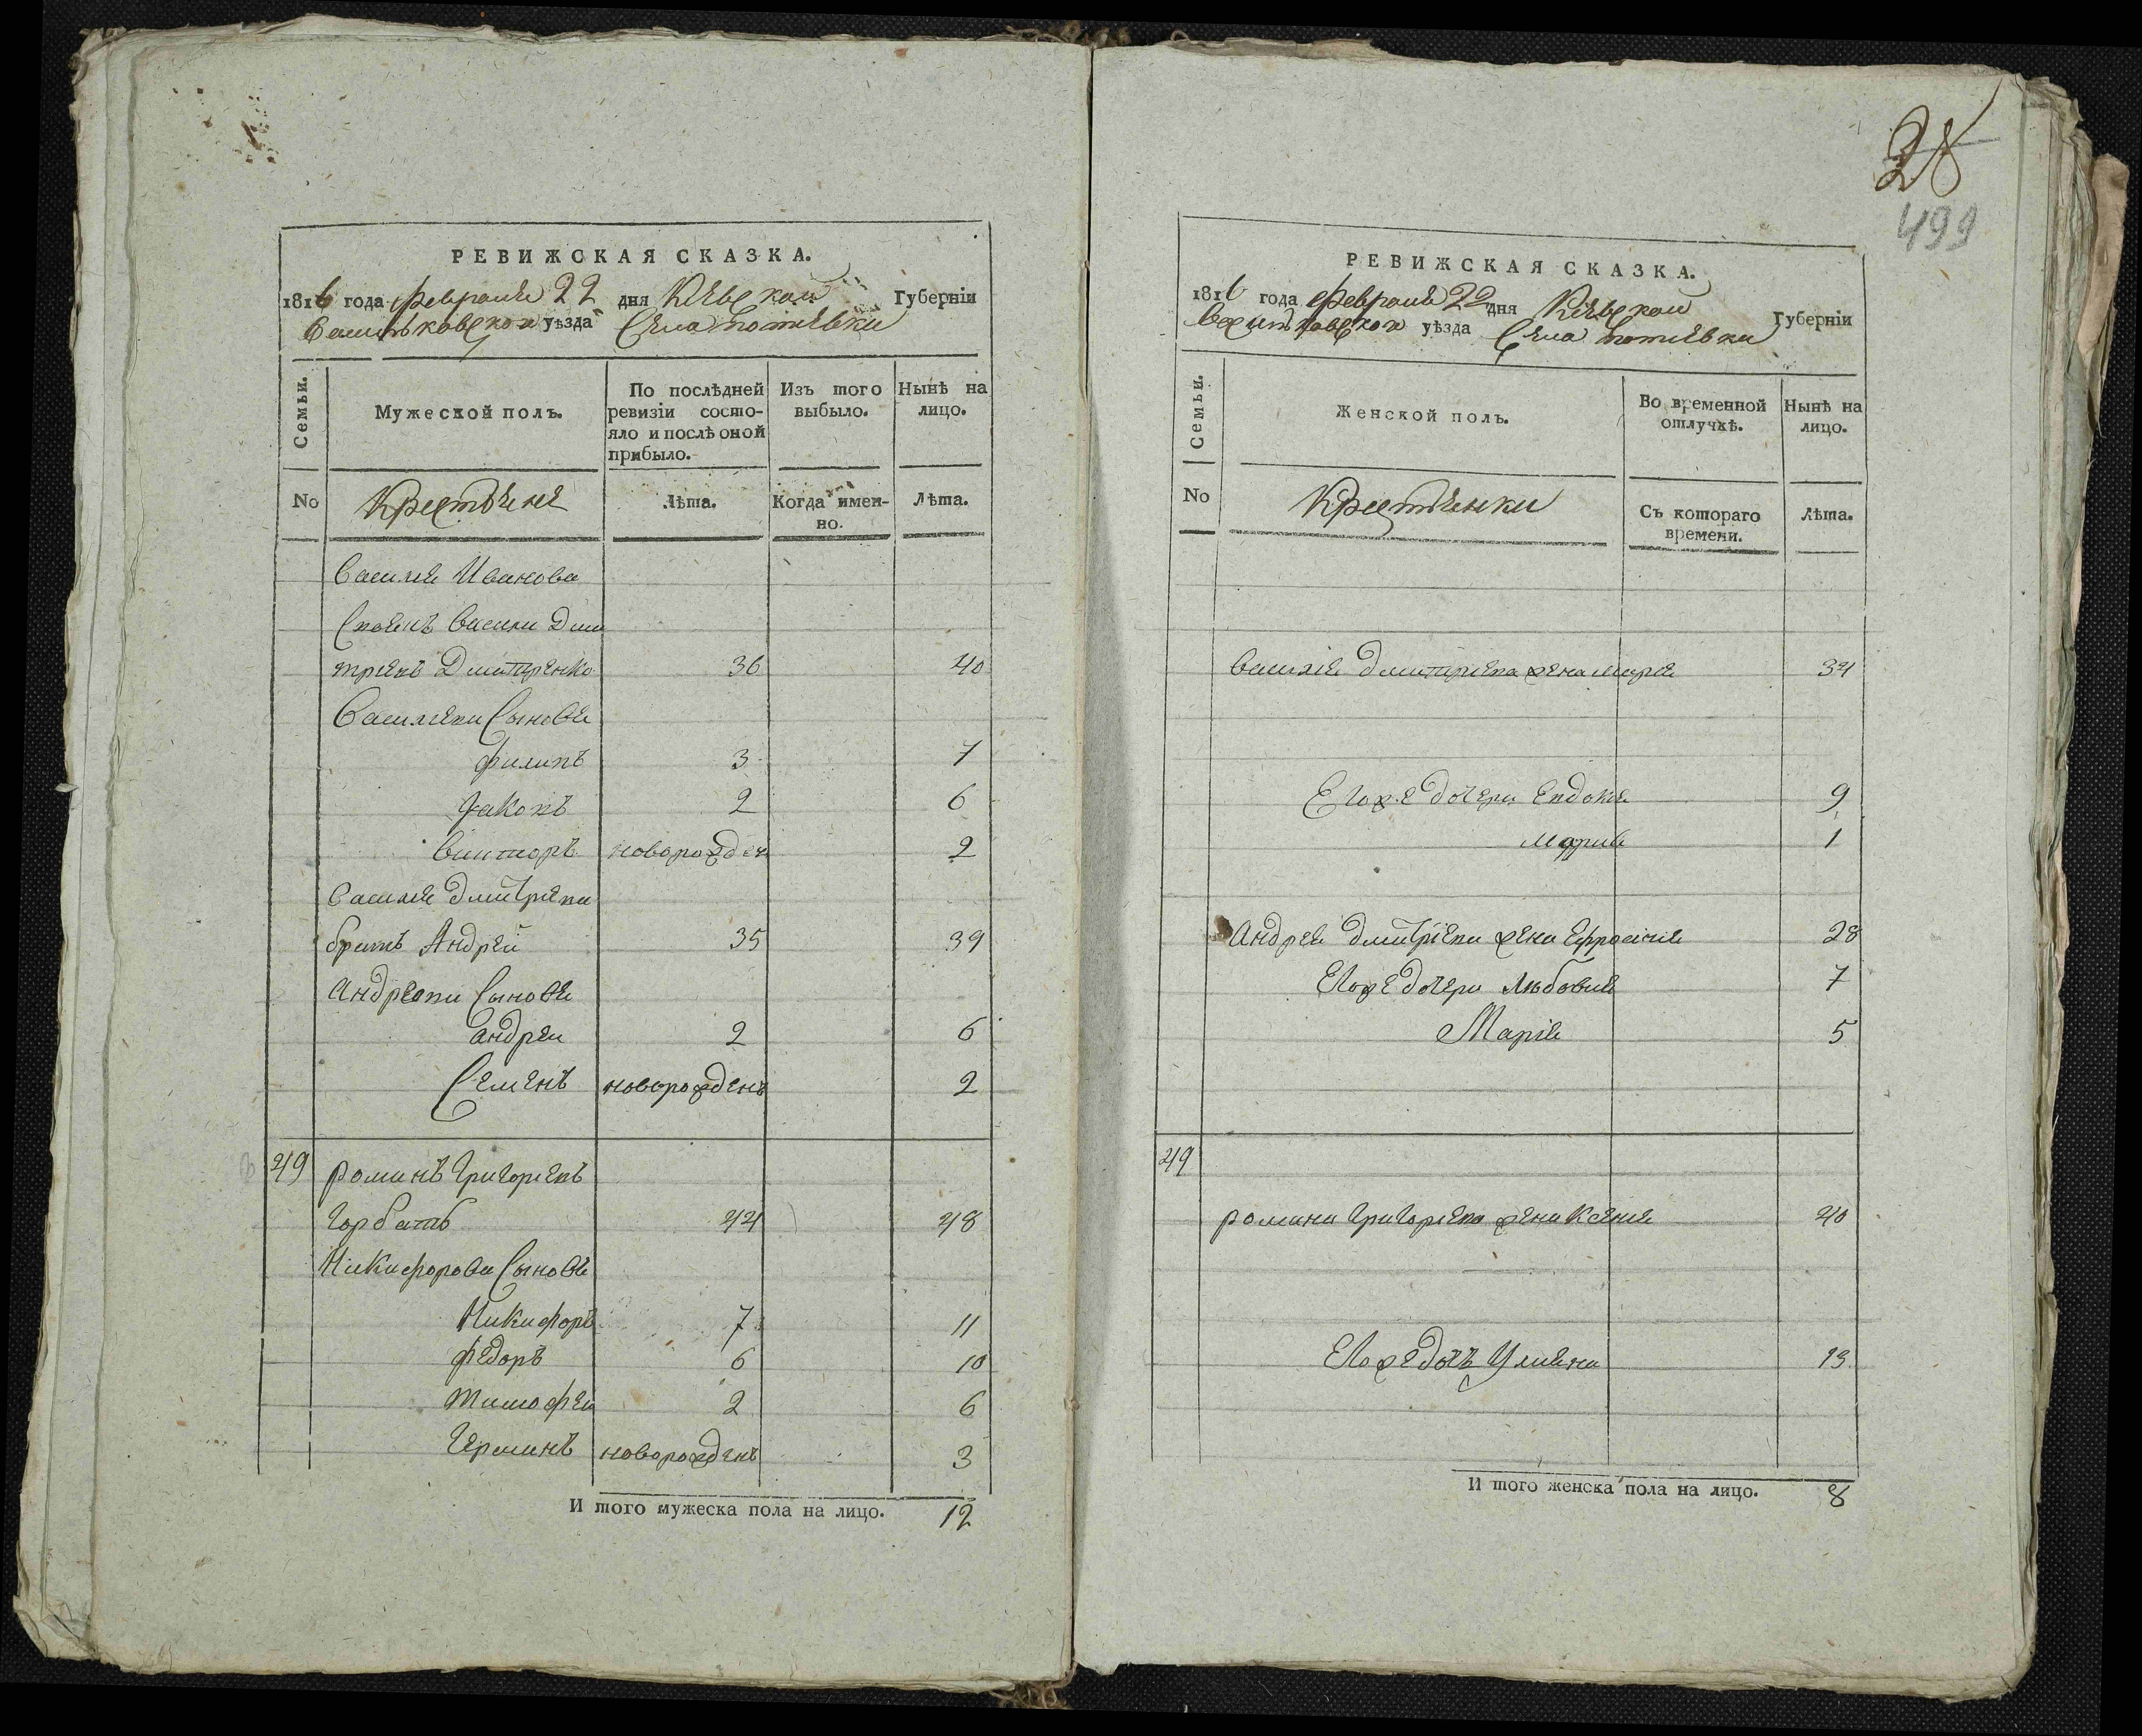 РЕВИЖСКАЯ СКАЗКА.
1816 года февраля 22 дня Кіевской Губерніи
Васильковской уѣзда Села Потіевки
Семьи.
Мужеской полъ.
По послѣдней ревизіи состояло и послѣ оной прибыло.
Изъ того выбыло.
Нынѣ на лицо.
No
Крестьяне
Лѣта.
Когда именно.
Лѣта.
Василія Иванова
васили Дми
триевъ Дмитренко 36 40
Василиеви Сынове
филипъ 3 7
Яковъ 2 6
Викторъ новорожден 2
Василия дмитриева
братъ Андрей 35 39
Андреяви Сынове
андреи 2 6
Семенъ новорожденъ 2
49 романъ Григориевъ
Горбатъ 44 48
Никифорова Сынове
Никифоръ 7 11
федоръ 6 10
тимофеи 2 6
Герминъ новорожденъ 3
И того мужеска пола на лицо. 12
28
499
РЕВИЖСКАЯ СКАЗКА.
1816 года февраля 22 дня Кіевской Губерніи
Васильковской уѣзда Села Потіевки
Семьи.
Женской полъ.
Во временной отлучкѣ.
Нынѣ на лицо.
No
Крестьянки
Съ котораго времени.
Лѣта.
Василия дмитриева жена мария 34
Егоже дочери Евдокия 9
мария 1
Андрея дмитріева жена Ефросиния 28
Егоже дочери Любовия 7
Марія 5
49
романа Григориева жена Ксения 40
Егоже дочъ Улияна 13
И того женска пола на лицо. 8